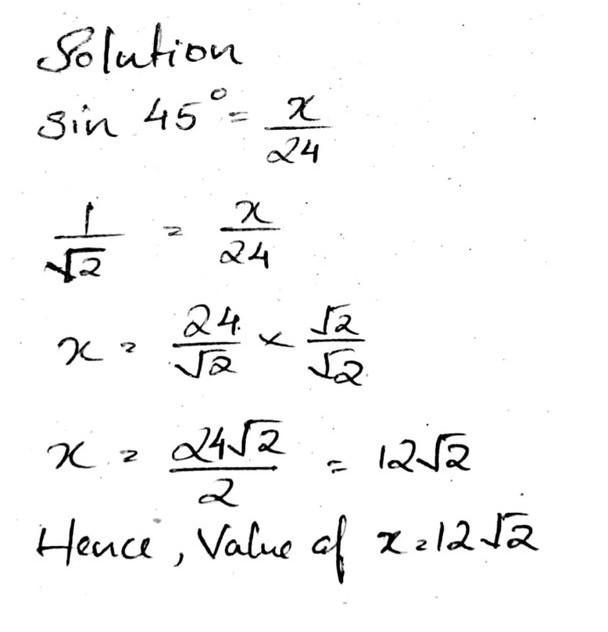 Solution
sin 45° = x/24
1/√2 = x/24
x = 24/√2 × √2/√2
x = 24√2/2 = 12√2
Hence, Value of x = 12√2